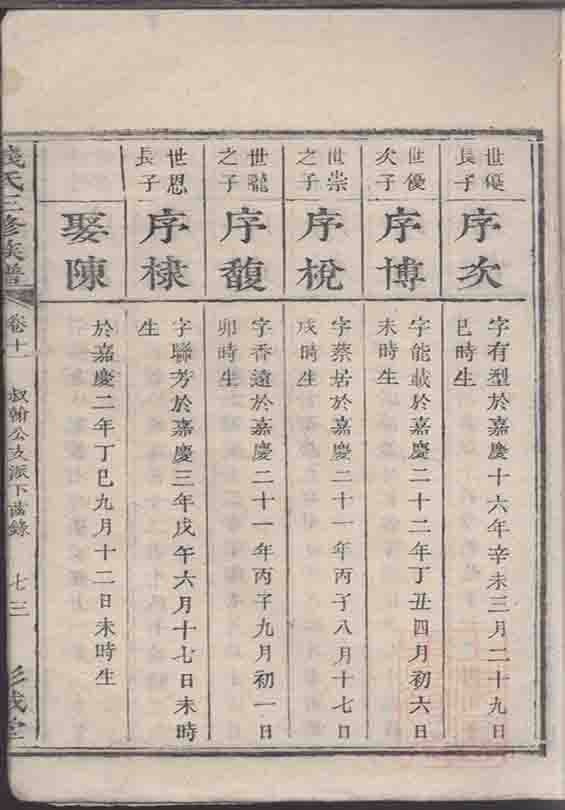 世優
長子
序次
字有型於嘉慶十六年辛未三月二十九日
巳時生
世優
次子
序博
字能載於嘉慶二十二年丁丑四月初六日
未時生
世崇
之子
序梲
字蔡居於嘉慶二十一年丙子八月十七日
戌時生
世龍
之子
序馥
字香遠於嘉慶二十一年丙子九月初一日
卯時生
世恩
長子
序棣
字聯芳於嘉慶三年戊午六月十七日未時
生
娶陳
於嘉慶二年丁巳九月十二日未時生
氏三修族譜
卷十一
叔翰公支派下齒錄
七三